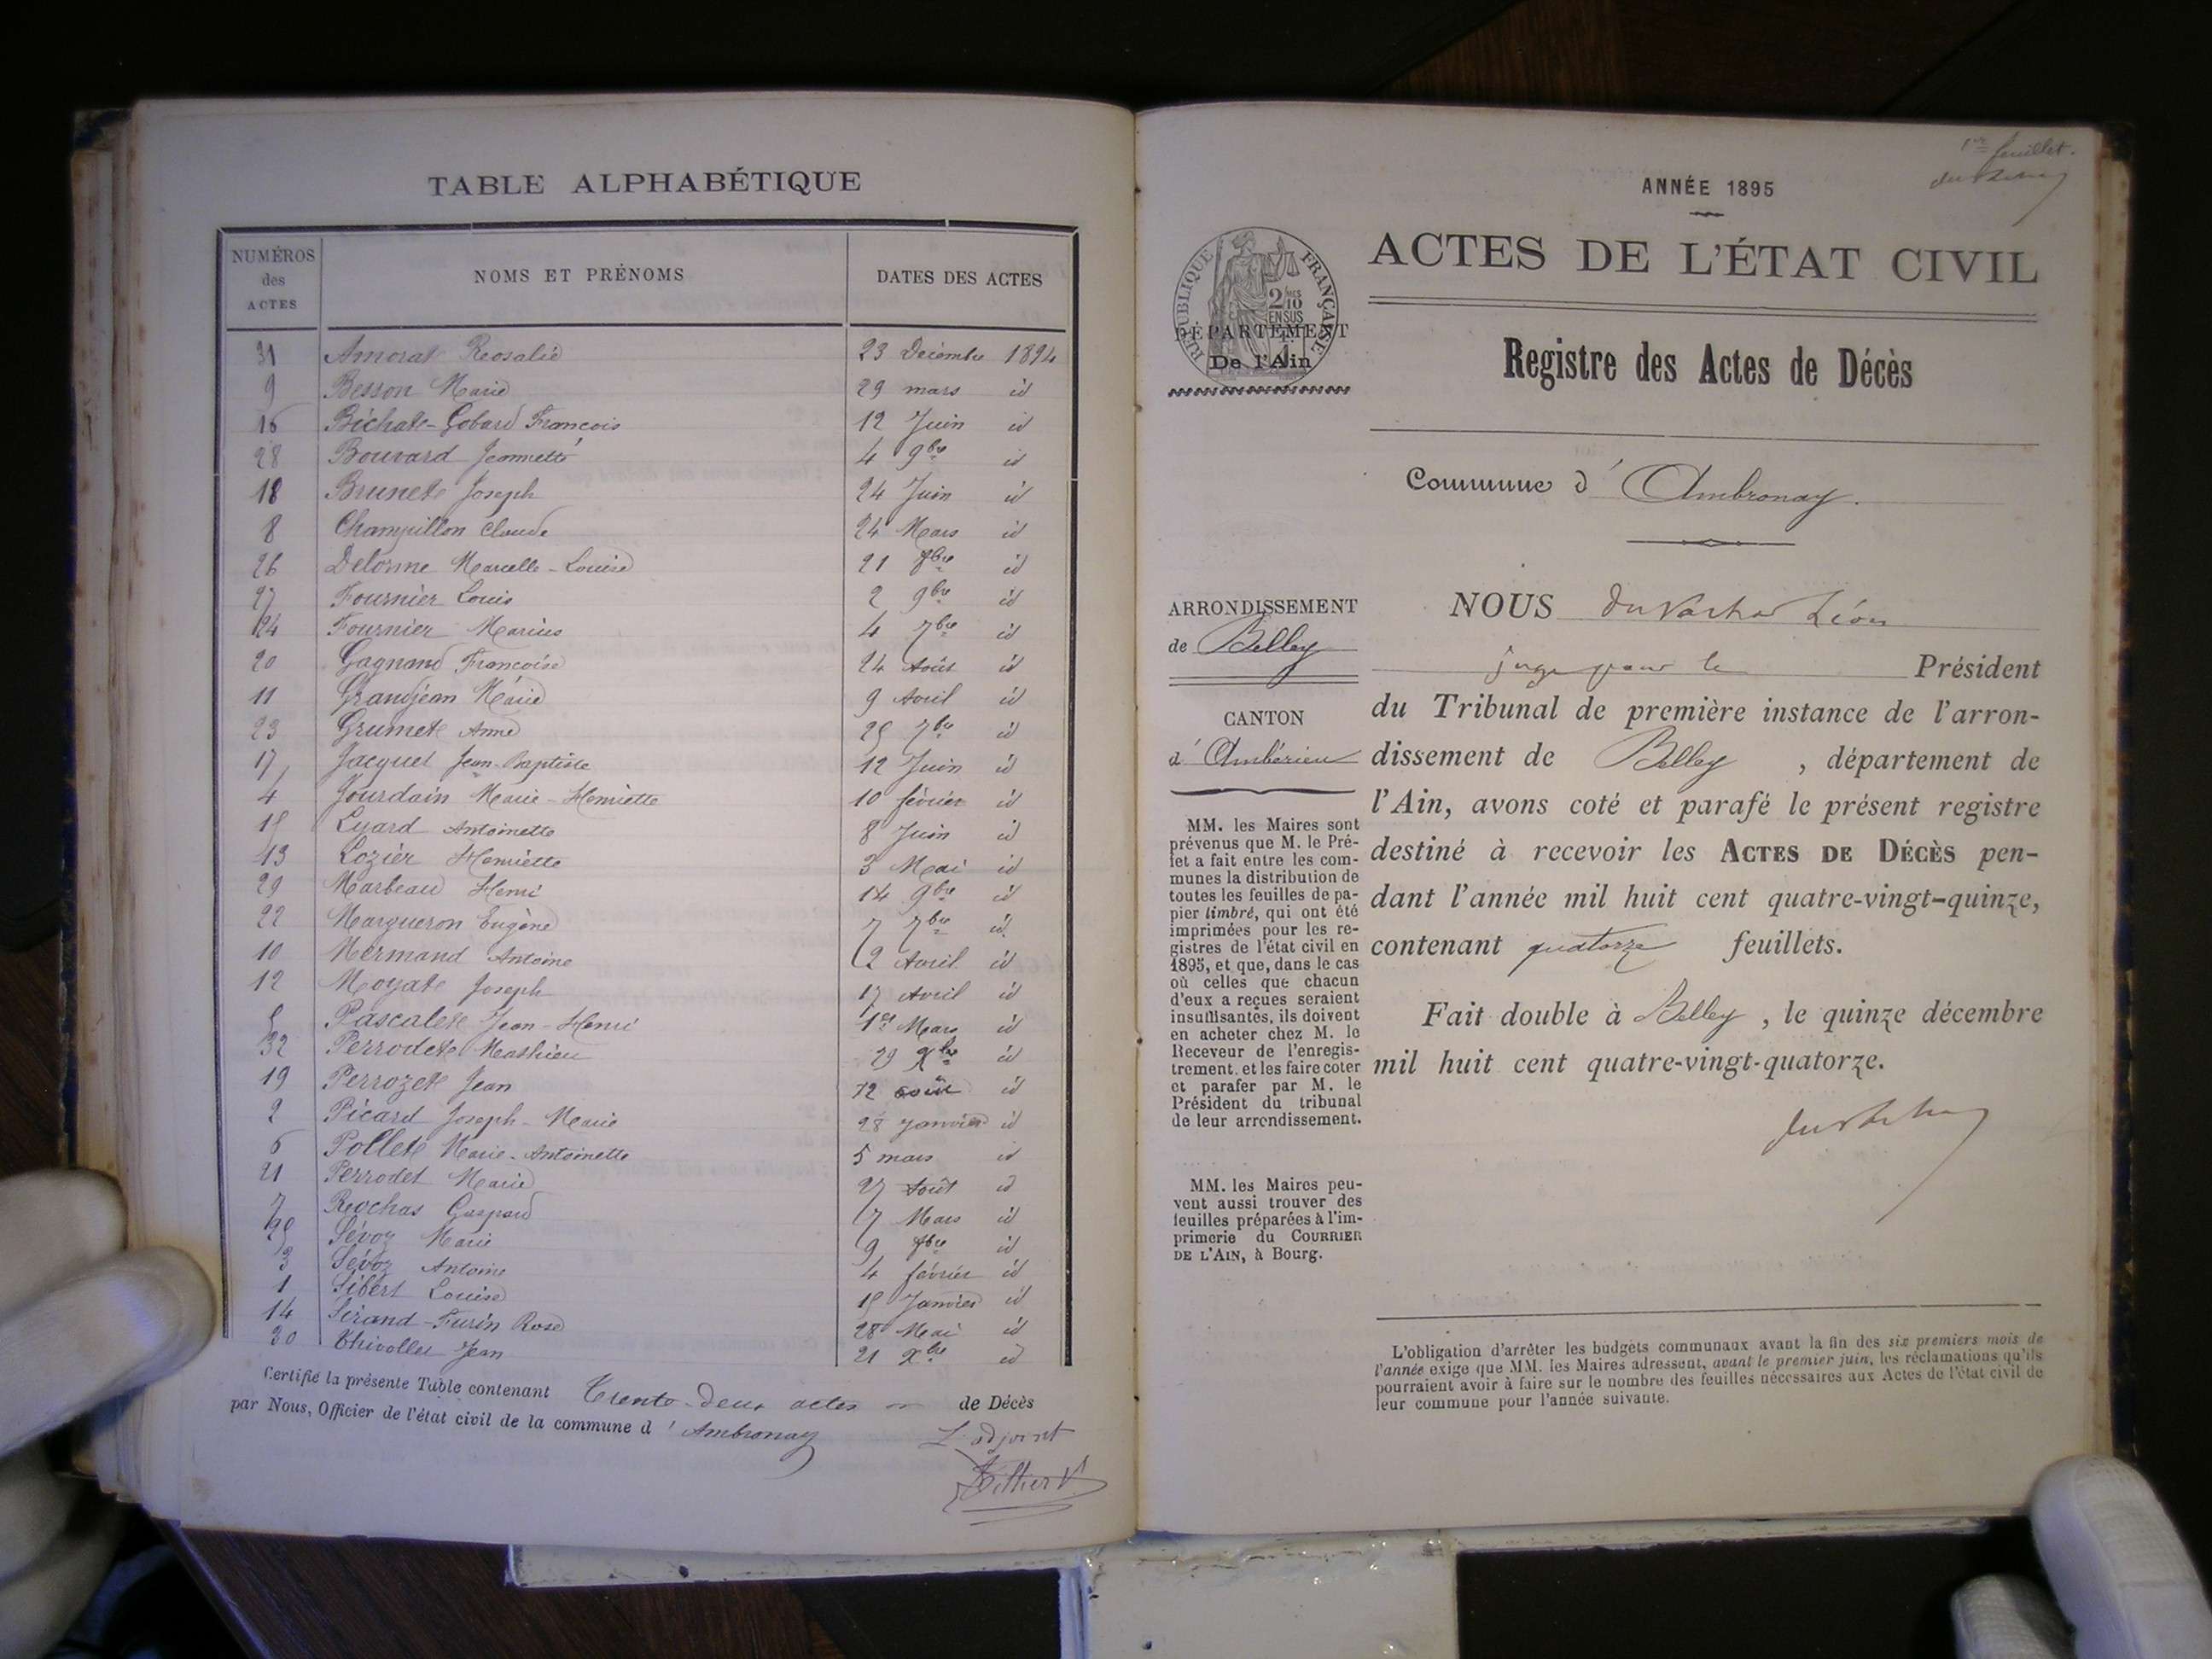 TABLE ALPHABÉTIQUE
NUMÉROS des ACTES | NOMS ET PRÉNOMS | DATES DES ACTES
31 Amorat Rosalie 23 Décembre 1894
9 Besson Marie 29 mars id
16 Béchate-Gobard François 12 Juin id
28 Bouvard Jeannette 4 9bre id
18 Brunet Joseph 24 Juin id
8 Champillon Claude 24 Mars id
26 Delorme Marcelle-Louise 21 8bre id
27 Fournier Louis 2 9bre id
24 Fournier Marius 4 7bre id
20 Gagnand Françoise 24 Août id
11 Grandjean Marie 9 Avril id
23 Grumet Anne 25 7bre id
17 Jacquet Jean-Baptiste 12 Juin id
4 Jourdain Marie-Henriette 10 février id
15 Lyard Antoinette 8 Juin id
13 Lozier Henriette 3 Mai id
29 Marbeau Henri 14 9bre id
22 Margueron Eugène 7 7bre id
10 Mermand Antoine 2 Avril id
12 Moyat Joseph 17 Avril id
5 Pascalet Jean-Henri 1er Mars id
32 Perrodet Mathieu 29 Xbre id
19 Perrozet Jean 12 août id
2 Picard Joseph-Marie 28 Janvier id
6 Pollet Marie-Antoinette 5 mars id
21 Perrodet Marie 27 Août id
7 Rochas Gaspard 7 Mars id
25 Sévoz Marie 9 8bre id
3 Sévoz Antoine 4 février id
1 Sibert Louise 15 Janvier id
14 Sirand-Furin Rose 28 Mai id
30 Thivollet Jean 21 Xbre id
Certifié la présente Table contenant Trente-deux actes de Décès
par Nous, Officier de l'état civil de la commune d'Ambronay
L'adjoint
1er feuillet.
ANNÉE 1895
ACTES DE L'ÉTAT CIVIL
RÉPUBLIQUE FRANÇAISE
2/10MES
EN SUS
DÉPARTEMENT
De l'Ain
Registre des Actes de Décès
Commune d'Ambronay.
ARRONDISSEMENT
de Belley
CANTON
d'Ambérieu
MM. les Maires sont
prévenus que M. le Pré-
fet a fait entre les com-
munes la distribution de
toutes les feuilles de pa-
pier timbré, qui ont été
imprimées pour les re-
gistres de l'état civil en
1895, et que, dans le cas
où celles que chacun
d'eux a reçues seraient
insuffisantes, ils doivent
en acheter chez M. le
Receveur de l'enregis-
trement, et les faire coter
et parafer par M. le
Président du tribunal
de leur arrondissement.
MM. les Maires peu-
vent aussi trouver des
feuilles préparées à l'im-
primerie du COURRIER
DE L'AIN, à Bourg.
NOUS Léon
juge pour le Président
du Tribunal de première instance de l'arron-
dissement de Belley, département de
l'Ain, avons coté et parafé le présent registre
destiné à recevoir les ACTES DE DÉCÈS pen-
dant l'année mil huit cent quatre-vingt-quinze,
contenant quatorze feuillets.
Fait double à Belley, le quinze décembre
mil huit cent quatre-vingt-quatorze.
L'obligation d'arrêter les budgets communaux avant la fin des six premiers mois de
l'année exige que MM. les Maires adressent, avant le premier juin, les réclamations qu'ils
pourraient avoir à faire sur le nombre des feuilles nécessaires aux Actes de l'état civil de
leur commune pour l'année suivante.